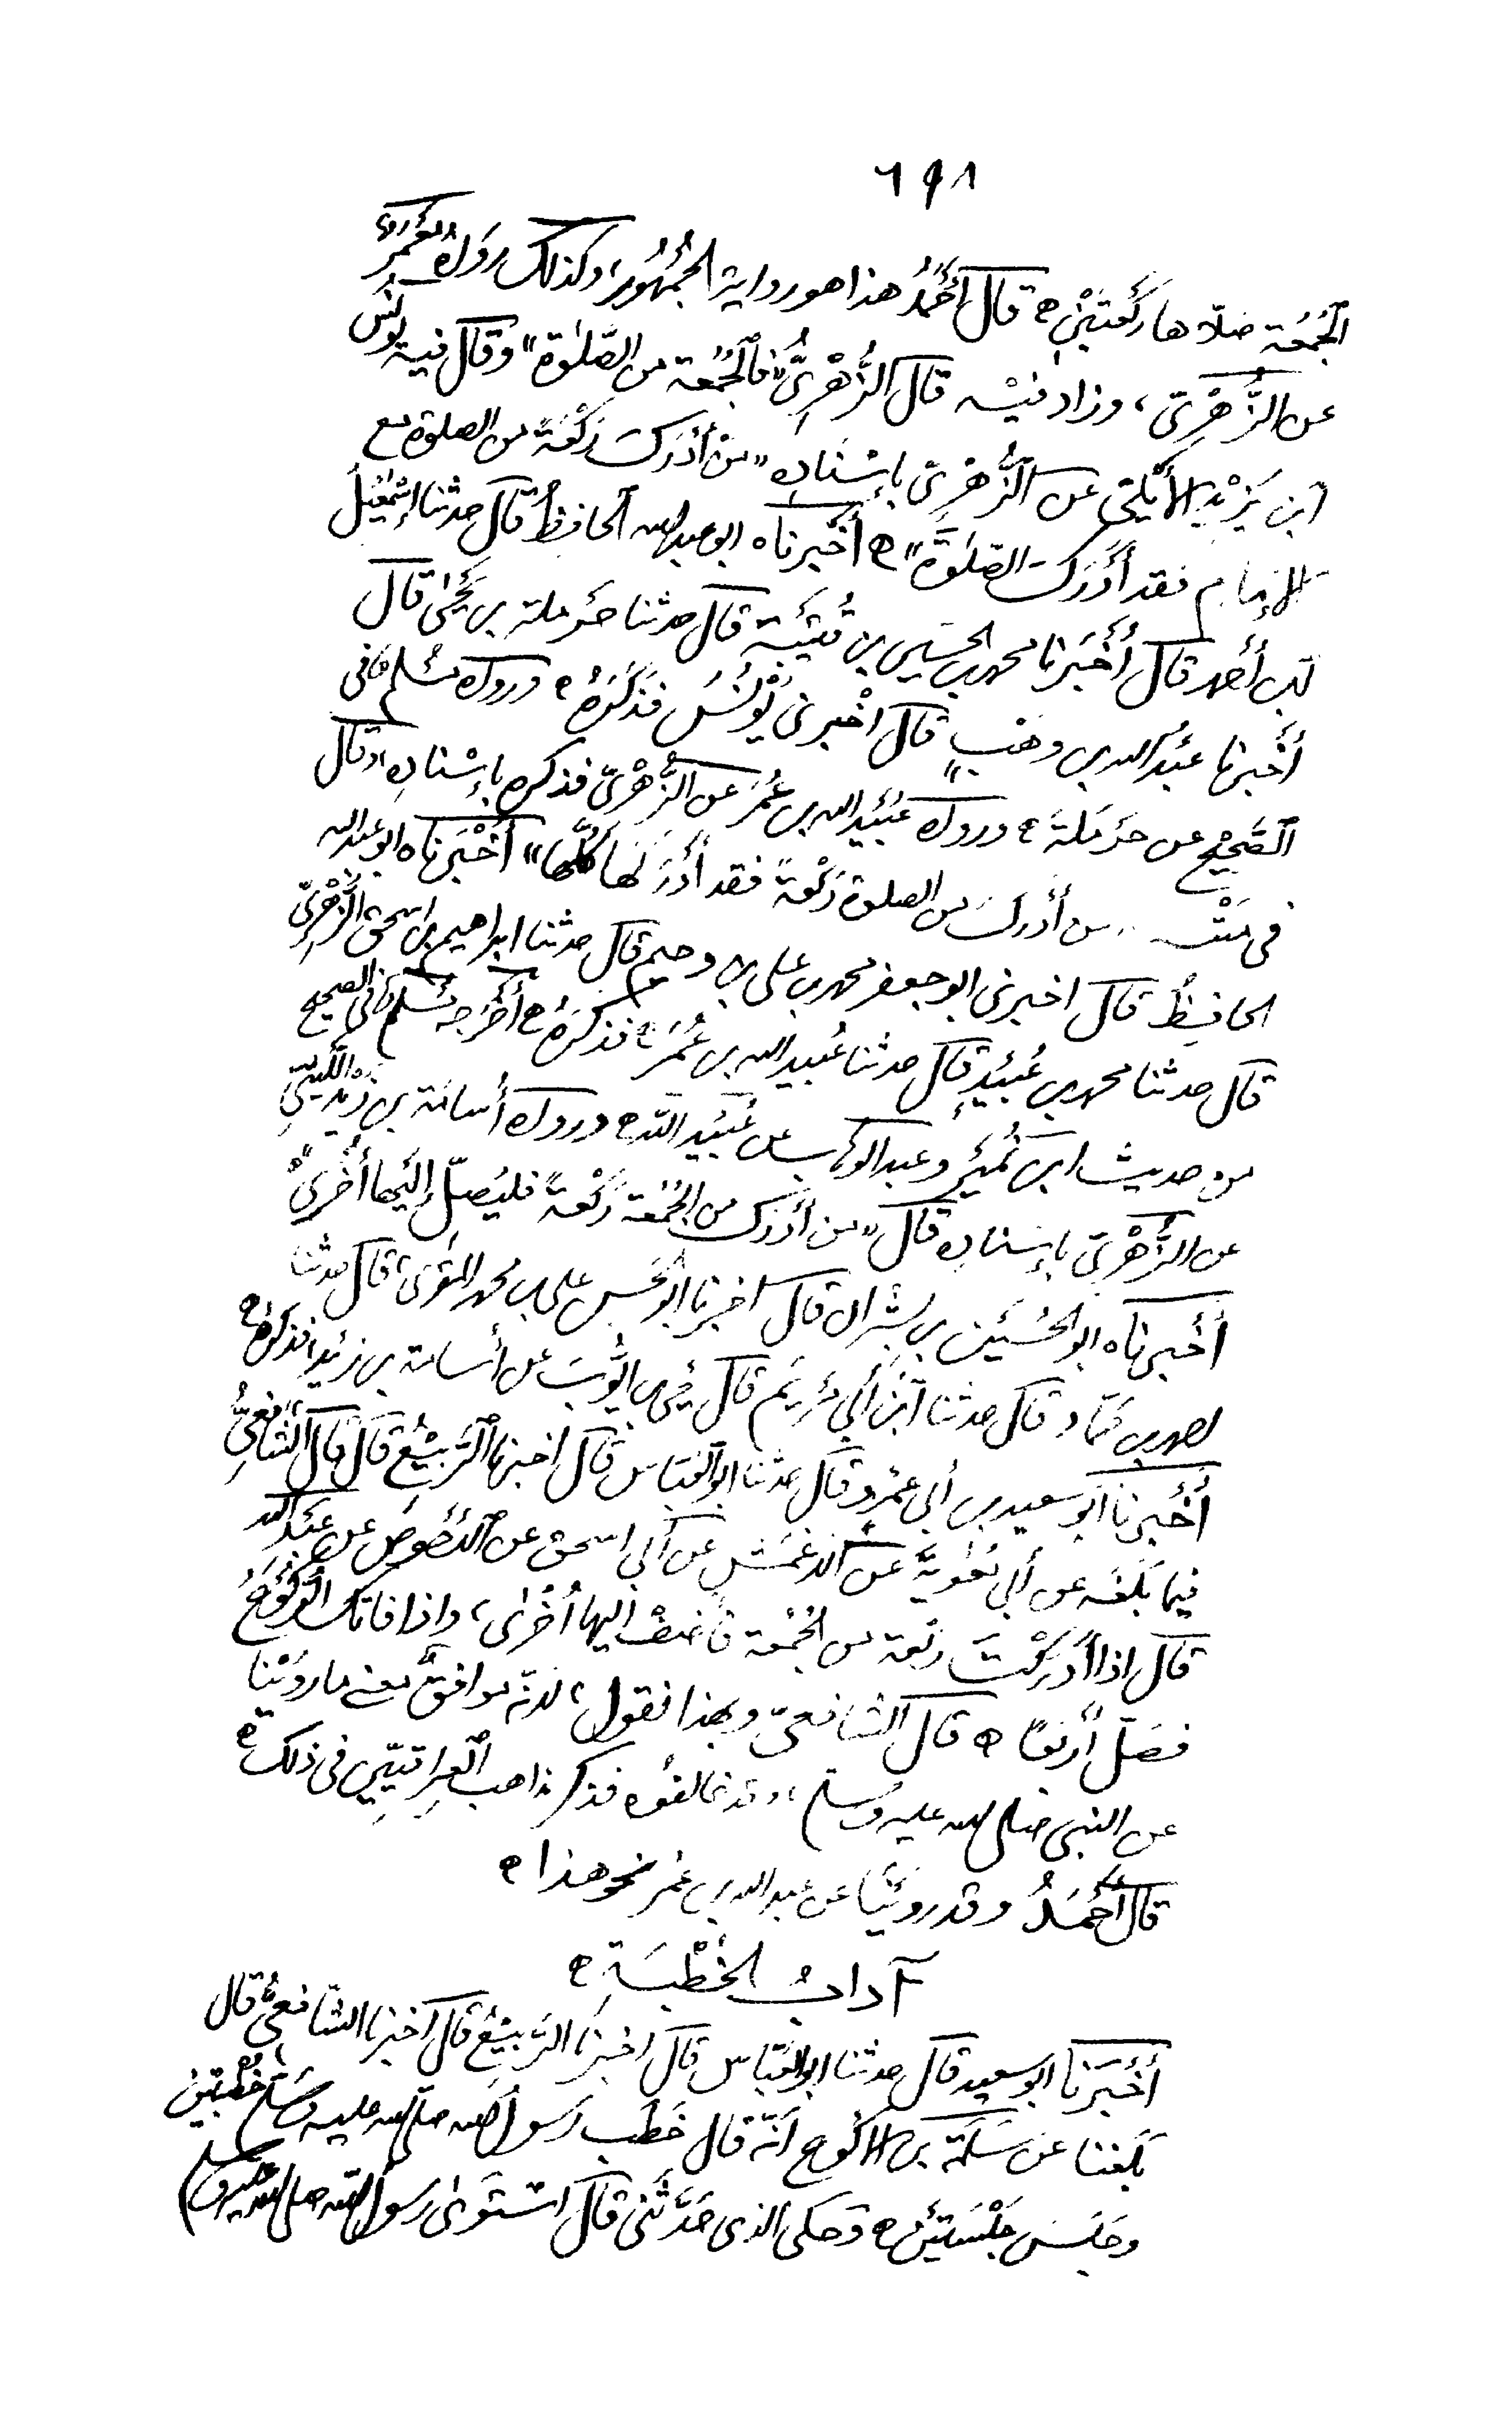 ٦٩٨
الجُمُعَة صلّاها رَكْعَتَيْنِ ه قال أَحْمَدُ هذا هو رواية الجُمْهُورِ، وكذلك رواه مَعْمَرٌ
عن الزُّهْرِىّ، وزاد فيْه قال الزُّهْرِىُّ "فالجُمُعَة من الصَّلوٰة" وقال فيه يُونُسُ
ابن يَزِيْد الأَيْلِىّ عن الزُّهْرِىّ بإسْنَادِه "مَنْ أَدْرَكَ رَكْعَةً من الصلوة مع
الإمام فقد أَدْرَكَ الصَّلوٰةَ" ه أَخْبَرناه ابو عبد الله الحافظُ قال حدثنا إسْمٰعِيْلُ
ابن أحمد قال أَخْبَرنا محمد بن الحسن بن قُتَيْبَة قال حدثنا حَرْملة بن يَحْيىٰ قال
أَخْبرنا عَبْدُ الله بن وهْبٍ قال اخْبرنى يُوْنُسُ فَذَكَرَهُ ه ورواه مُسْلم فى
الصَّحِيْح عن حَرْمَلَةَ ه ورواه عُبَيْد الله بن عُمَرَ عن الزُّهْرِىّ فذكره بإسْنادِه، وقال
فى مَتْنه "من أَدرك من الصلوة رَكْعةً فقد أَدْرَكَها كُلَّها" أَخْبَرَناه ابو عبد الله
الحافِظُ قال اخبرنى ابو جعفر محمد بن على بن دحيم قال حدثنا ابراهيم بن اسحق الزُّهْرِىّ
قال حدثنا محمد بن عُبَيْدٍ قال حدثنا عُبيد الله بن عُمَرَ ه فذكَرَهُ ه أَخْرَجَه مُسْلم فى الصحيح
من حديث ابن نُمَيْر وعبد الوهّاب عن عُبَيْد الله ه ورواه أُسامَة بن زَيْد اللَّيْثِىّ
عن الزُّهْرِىّ بإسناده قال "من أَدْرَك من الجُمُعَة رَكْعَةً فليُصَلِّ إِلَيْها أُخْرىٰ"
أَخْبرناه ابو الحُسَيْن بن بِشْران قال اخبرنا ابو الحسن على بن محمد المقرئ، قال حدثنا
احمد بن حَمّاد قال حدثنا ابْنُ أَبى مَرْيَم قال يحيى بن ايُّوبَ عن أُسامة بن زَيْد، فذكره ه
أَخْبرنا ابو سعيد بن أبى عَمْرٍو قال حدثنا ابو العَبّاس قال اخبرنا الرَّبِيْعُ قال قال الشّافعىُّ
فيما بَلَغَه عن أبى مُعٰوِيَةَ عن الأعْمَش عن أبى اسحق عن الأحْوَصِ عن عَبْد الله
قال اذا أَدركْتَ ركعة من الجُمْعة فأَضِفْ اليها أُخْرٰى، واذا فاتك الرُّكُوْعُ
فصَلِّ أَرْبَعًا ه قال الشافعىّ وبهذا نقول، لأنّه موافقٌ معنى ما رُوِّيْنا
عن النبى صلى الله عليه وسلم، وقد خالفوه فذكر مذاهب العِراقيّين فى ذلك ه
قال أَحْمَدُ وقد رُوِّيْنا عن عبد الله بن عُمَر نحو هذا ه
آدابُ الخُطْبَةِ ه
أَخْبَرَنا ابو سعيد قال حدثنا ابو العَبّاس قال اخبرنا الرَّبِيْعُ قال أخبرنا الشّافعىُّ قال
بَلَغنا عن سَلَمَة بن الأكْوع أَنّه قال خَطَب رَسولُ الله صلّى الله عليه وسَلّم خُطْبَتَيْن
وجَلَسَ جَلْسَتَيْن ه وحكى الذى حَدَّثَنى قال اسْتَوىٰ رَسولُ الله صلى الله عليه وسلم